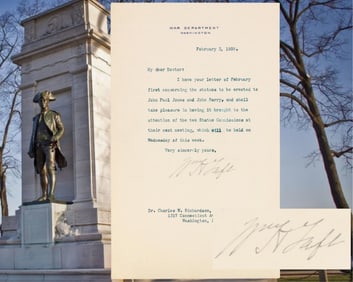 WAR DEPARTMENT
WASHINGTON.
February 3, 1908.
My dear Doctor:
I have your letter of February
first concerning the statues to be erected to
John Paul Jones and John Barry, and shall
take pleasure in having it brought to the
attention of the two Statue Commissions at
their next meeting, which will be held on
Wednesday of this week.
Very sincerely yours,
Wm H Taft
Dr. Charles W. Richardson,
1317 Connecticut A
Washington,
Wm H Taft